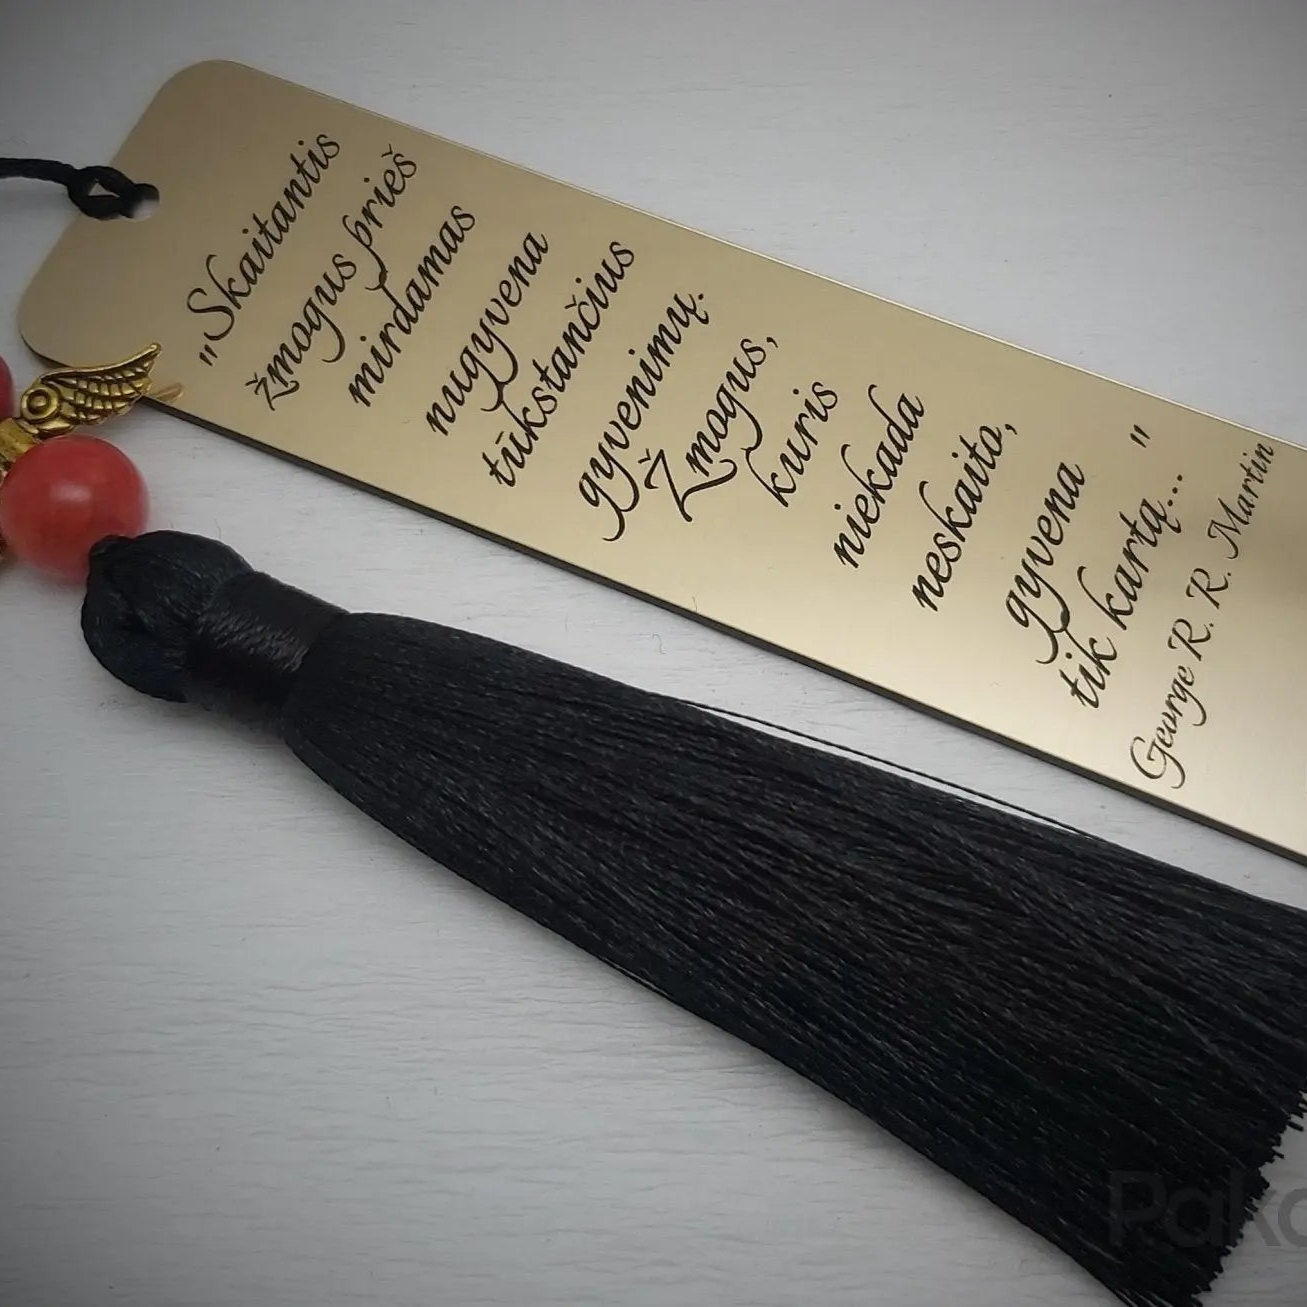 „Skaitantis
žmogus prieš
mirdamas
nugyvena
tūkstančius
gyvenimų.
Žmogus,
kuris
niekada
neskaito,
gyvena
tik kartą... "
George R. R. Martin